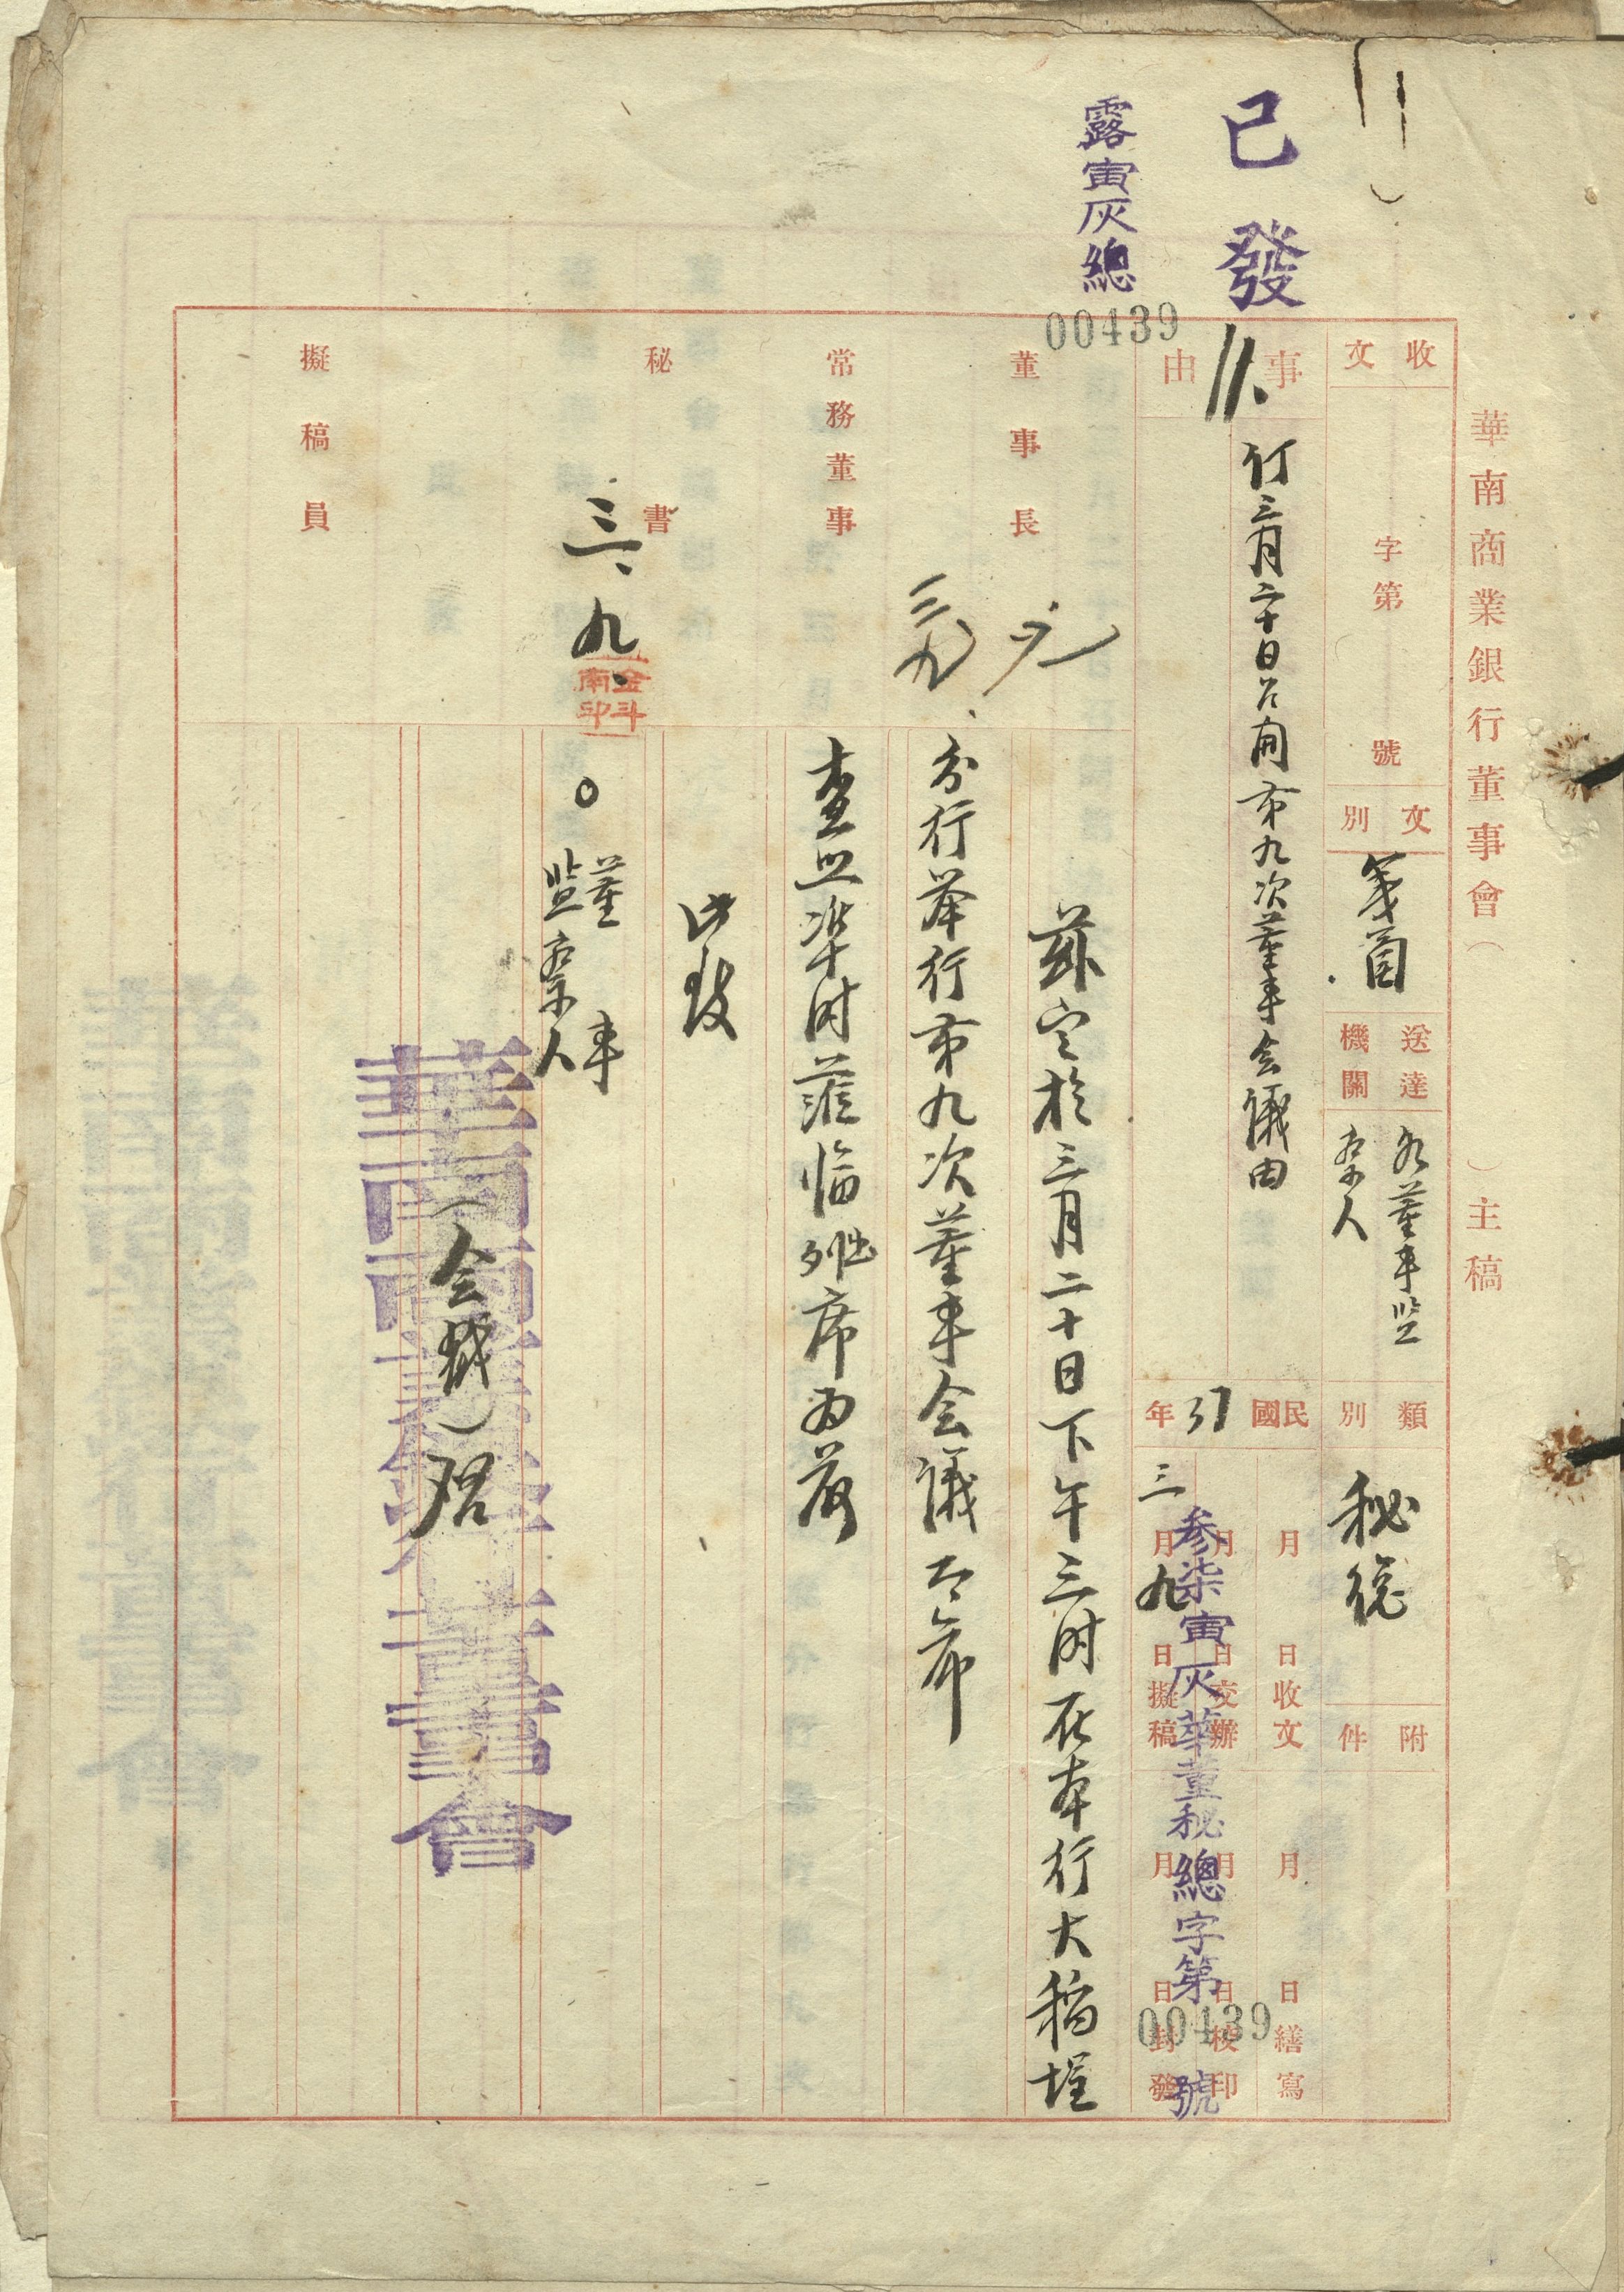 華南商業銀行董事會（　）主稿
收文
字第　號
文別
箋函
送達機關
各董事監
察人
類別
秘總
附件
已發
11.
事由
訂三月二十日召開第九次董事會議由
民國37年
月　日收文
月　日繕寫
月　日交辦
月　日校印
三月九日擬稿
月　日封發
参柒寅灰華董秘總字第00439號
露寅灰總
00439
董事長
常務董事
三九
秘書
三、九、
金斗南印
擬稿員
茲定於三月二十日下午三时在本行大稻埕
分行举行第九次董事会議
查照準时蒞临出席为荷
此致
董事
監察人
（全銜）啓
華南商業銀行董事會